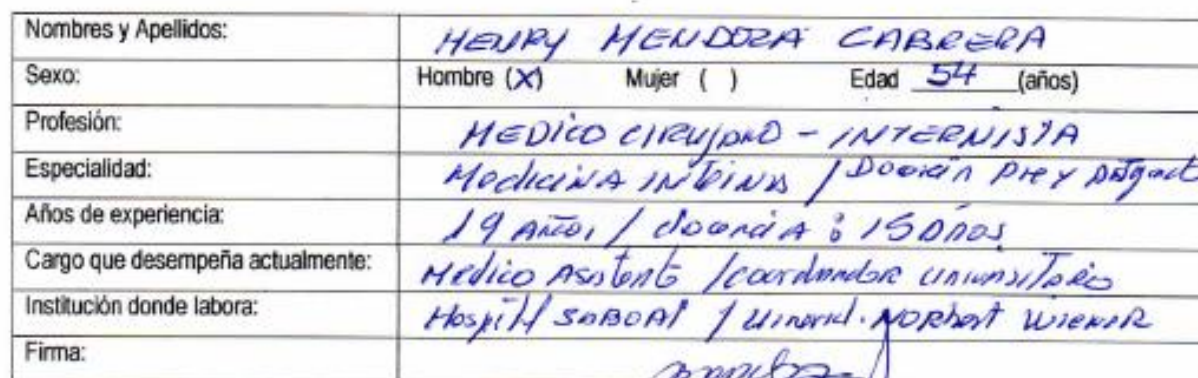 Nombres y Apellidos: HENRY MENDOZA CABRERA
Sexo: Hombre (X) Mujer ( ) Edad 54 (años)
Profesión: MEDICO CIRUJANO - INTERNISTA
Especialidad: Medicina Interna / Docencia Pre y postgrado
Años de experiencia: 19 años / docencia : 15 años
Cargo que desempeña actualmente: Medico Asistente / coordinador universitario
Institución donde labora: Hospital / Norbert Wiener
Firma: